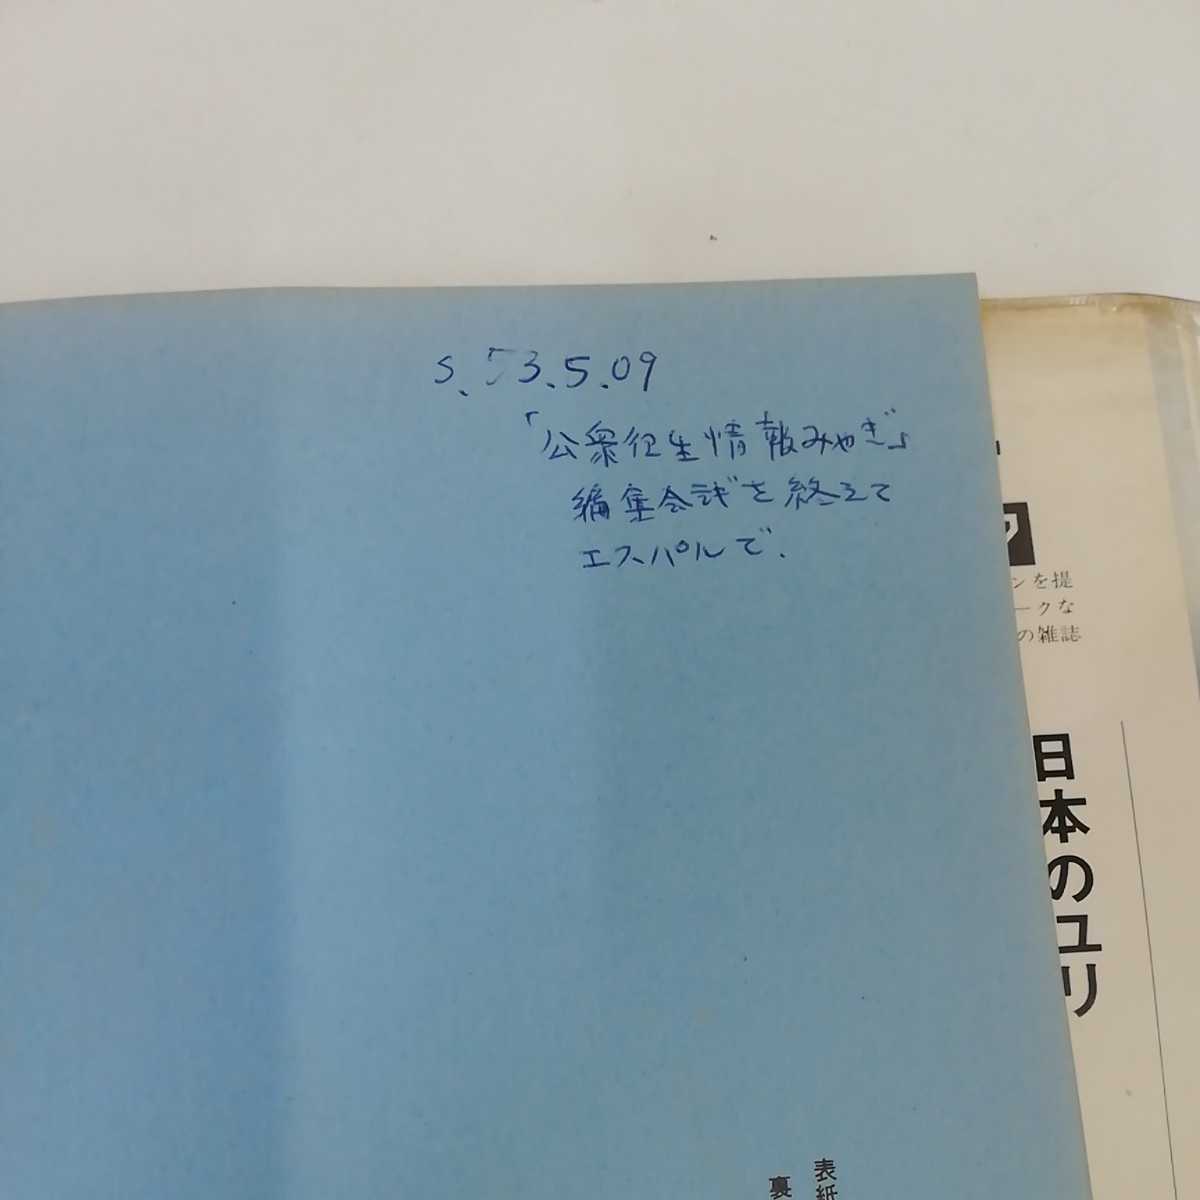 S.53.5.09
「公衆衛生情報みやぎ」
編集会議を終えて
エスパルで.
ンを提
ークな
の雑誌
日本のユリ
表紙
裏